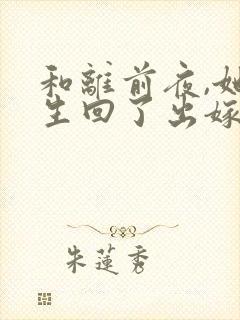 和離前夜,她
生回了出嫁
朱蓮秀